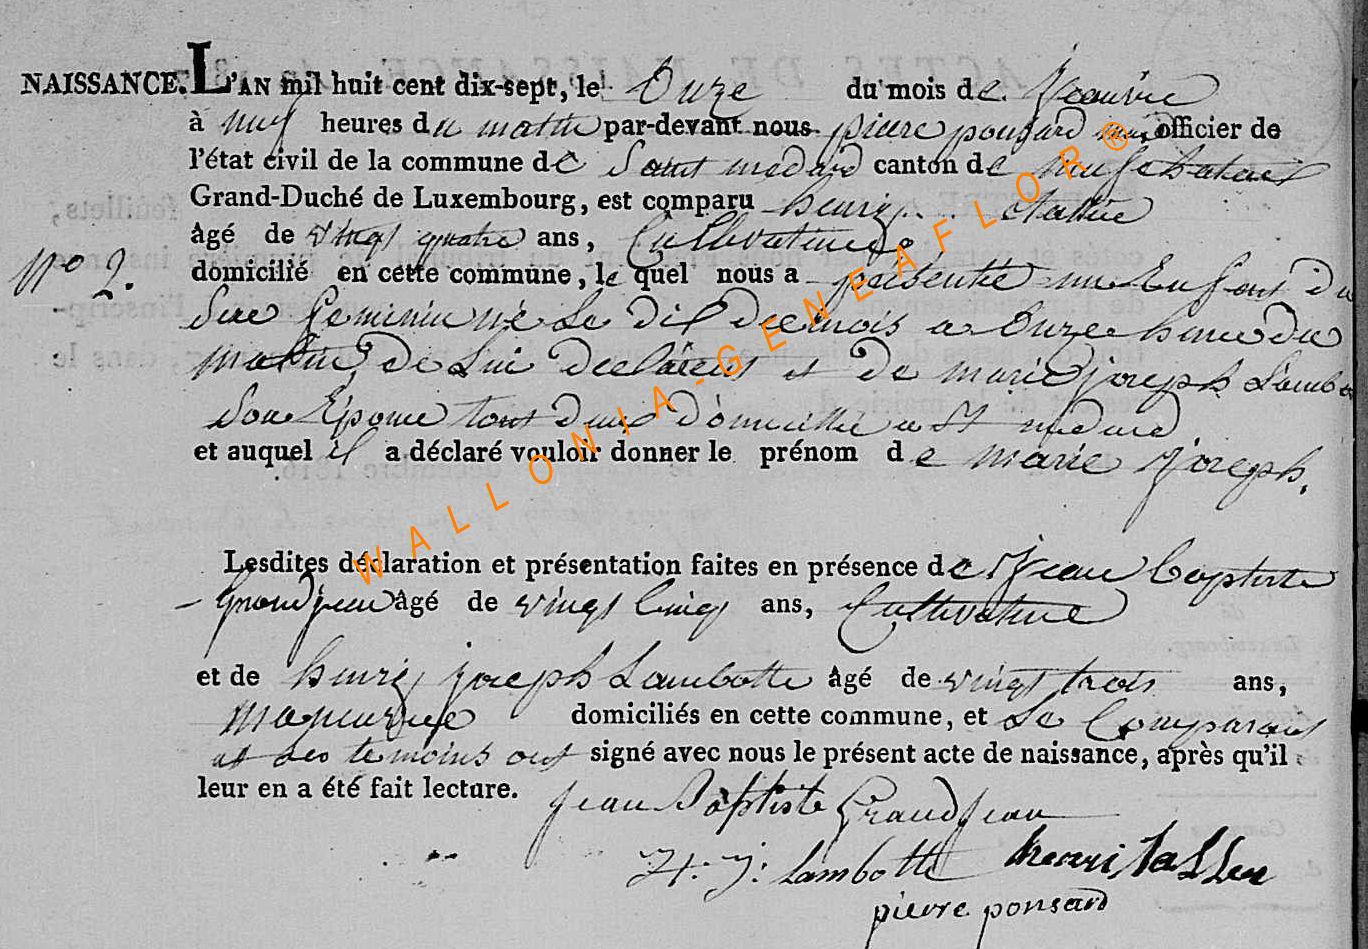 NAISSANCE. L'AN mil huit cent dix-sept, le Onze du mois de Jeanvie
à neuf heures du matin par-devant nous pierre ponsard officier de
l'état civil de la commune de Saint medard canton de neufchateau
Grand-Duché de Luxembourg, est comparu henry
âgé de vingt quatre ans, Cultivateure
N° 2. domicilié en cette commune, le quel nous a présentée un Enfant du
Sexe feminin né Le dix de ce mois a Onze heure du
matin de Lui declarent et de marie joseph Lambo
Son Epouse tout deux domicilié a St medard
et auquel il a déclaré vouloir donner le prénom de marie joseph.
Lesdites déclaration et présentation faites en présence de Jean Baptiste
Grandjean âgé de vingt Cinq ans, Cultivateure
et de henry joseph Lambotte âgé de vingt trois ans,
domiciliés en cette commune, et Le Comparant
et Les temoins ont signé avec nous le présent acte de naissance, après qu'il
leur en a été fait lecture.
Jean Baptiste Grandjean
H. J. Lambotte henri
pierre ponsard
WALLONIA-GENEAFLOR®